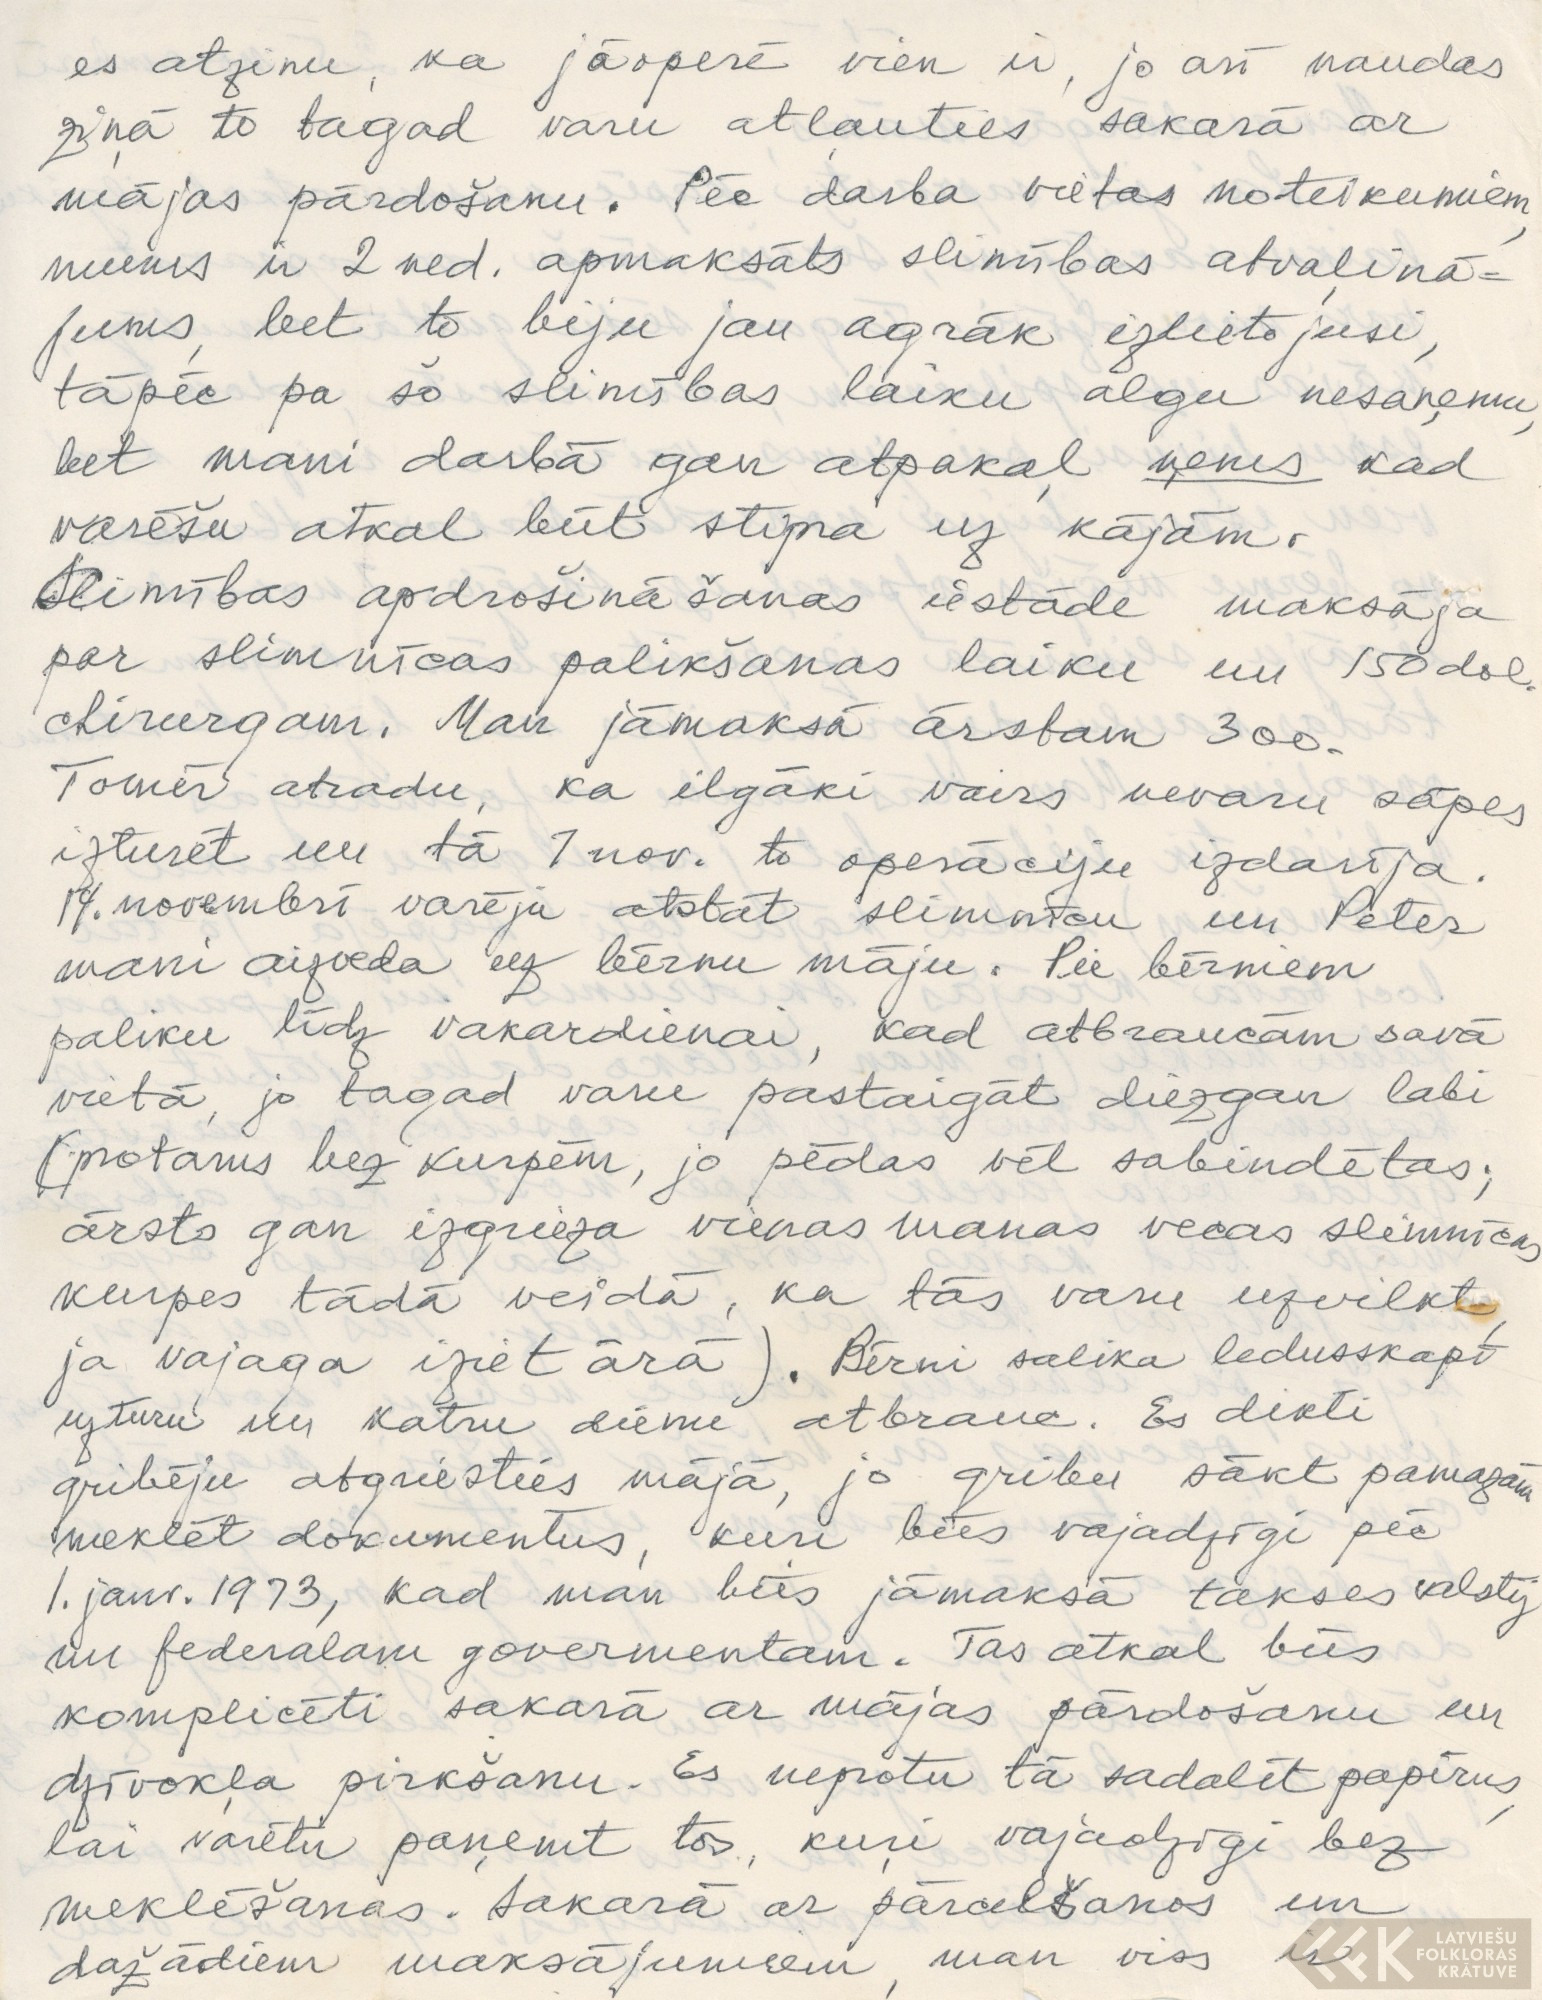 es atzinu, ka jāoperē vien ir, jo arī naudas
ziņā to tagad varu atļauties sakarā ar
mājas pārdošanu. Pēc darba vietas noteikumiem,
mums ir 2 ned. apmaksāts slimības atvaļinā-
jums, bet to biju jau agrāk izlietojusi,
tāpēc pa šo slimības laiku algu nesaņemu,
bet mani darbā gan atpakaļ ņems kad
varēšu atkal būt stipra uz kājām.
Slimības apdrošināšanas iestāde maksāja
par slimnīcas palikšanas laiku un 150 dol.
chirurgam. Man jāmaksā ārstam 300.
Tomēr atradu, ka ilgāki vairs nevaru sāpes
izturēt un tā 7 nov. to operāciju izdarīja.
14. novembrī varēju atstāt slimnīcu un Pēter
mani aizveda uz bērnu māju. Pie bērniem
paliku līdz vakardienai, kad atbraucām savā
vietā, jo tagad varu pastaigāt diezgan labi
(protams bez kurpēm, jo pēdas vēl sabindētas;
ārsts gan izgrieza vienas manas vecas slimnīcas
kurpes tādā veidā, ka tās varu uzvilkt,
ja vajaga iziet ārā). Bērni salika ledusskapī
uzturu un katru dienu atbrauc. Es dikti
gribēju atgriesties mājā, jo gribu sākt pamazām
meklēt dokumentus, kuri būs vajadzīgi pēc
1. janv. 1973, kad man būs jāmaksā takses valstij
un federalam govermentam. Tas atkal būs
komplicēti sakarā ar mājas pārdošanu un
dzīvokļa pirkšanu. Es neprotu tā sadalīt papīrus,
lai varētu paņemt tos, kuŗi vajadzīgi bez
meklēšanas. Sakarā ar pārcelšanos un
dažādiem maksājumiem, man viss ir
LATVIEŠU
FOLKLORAS
KRĀTUVE